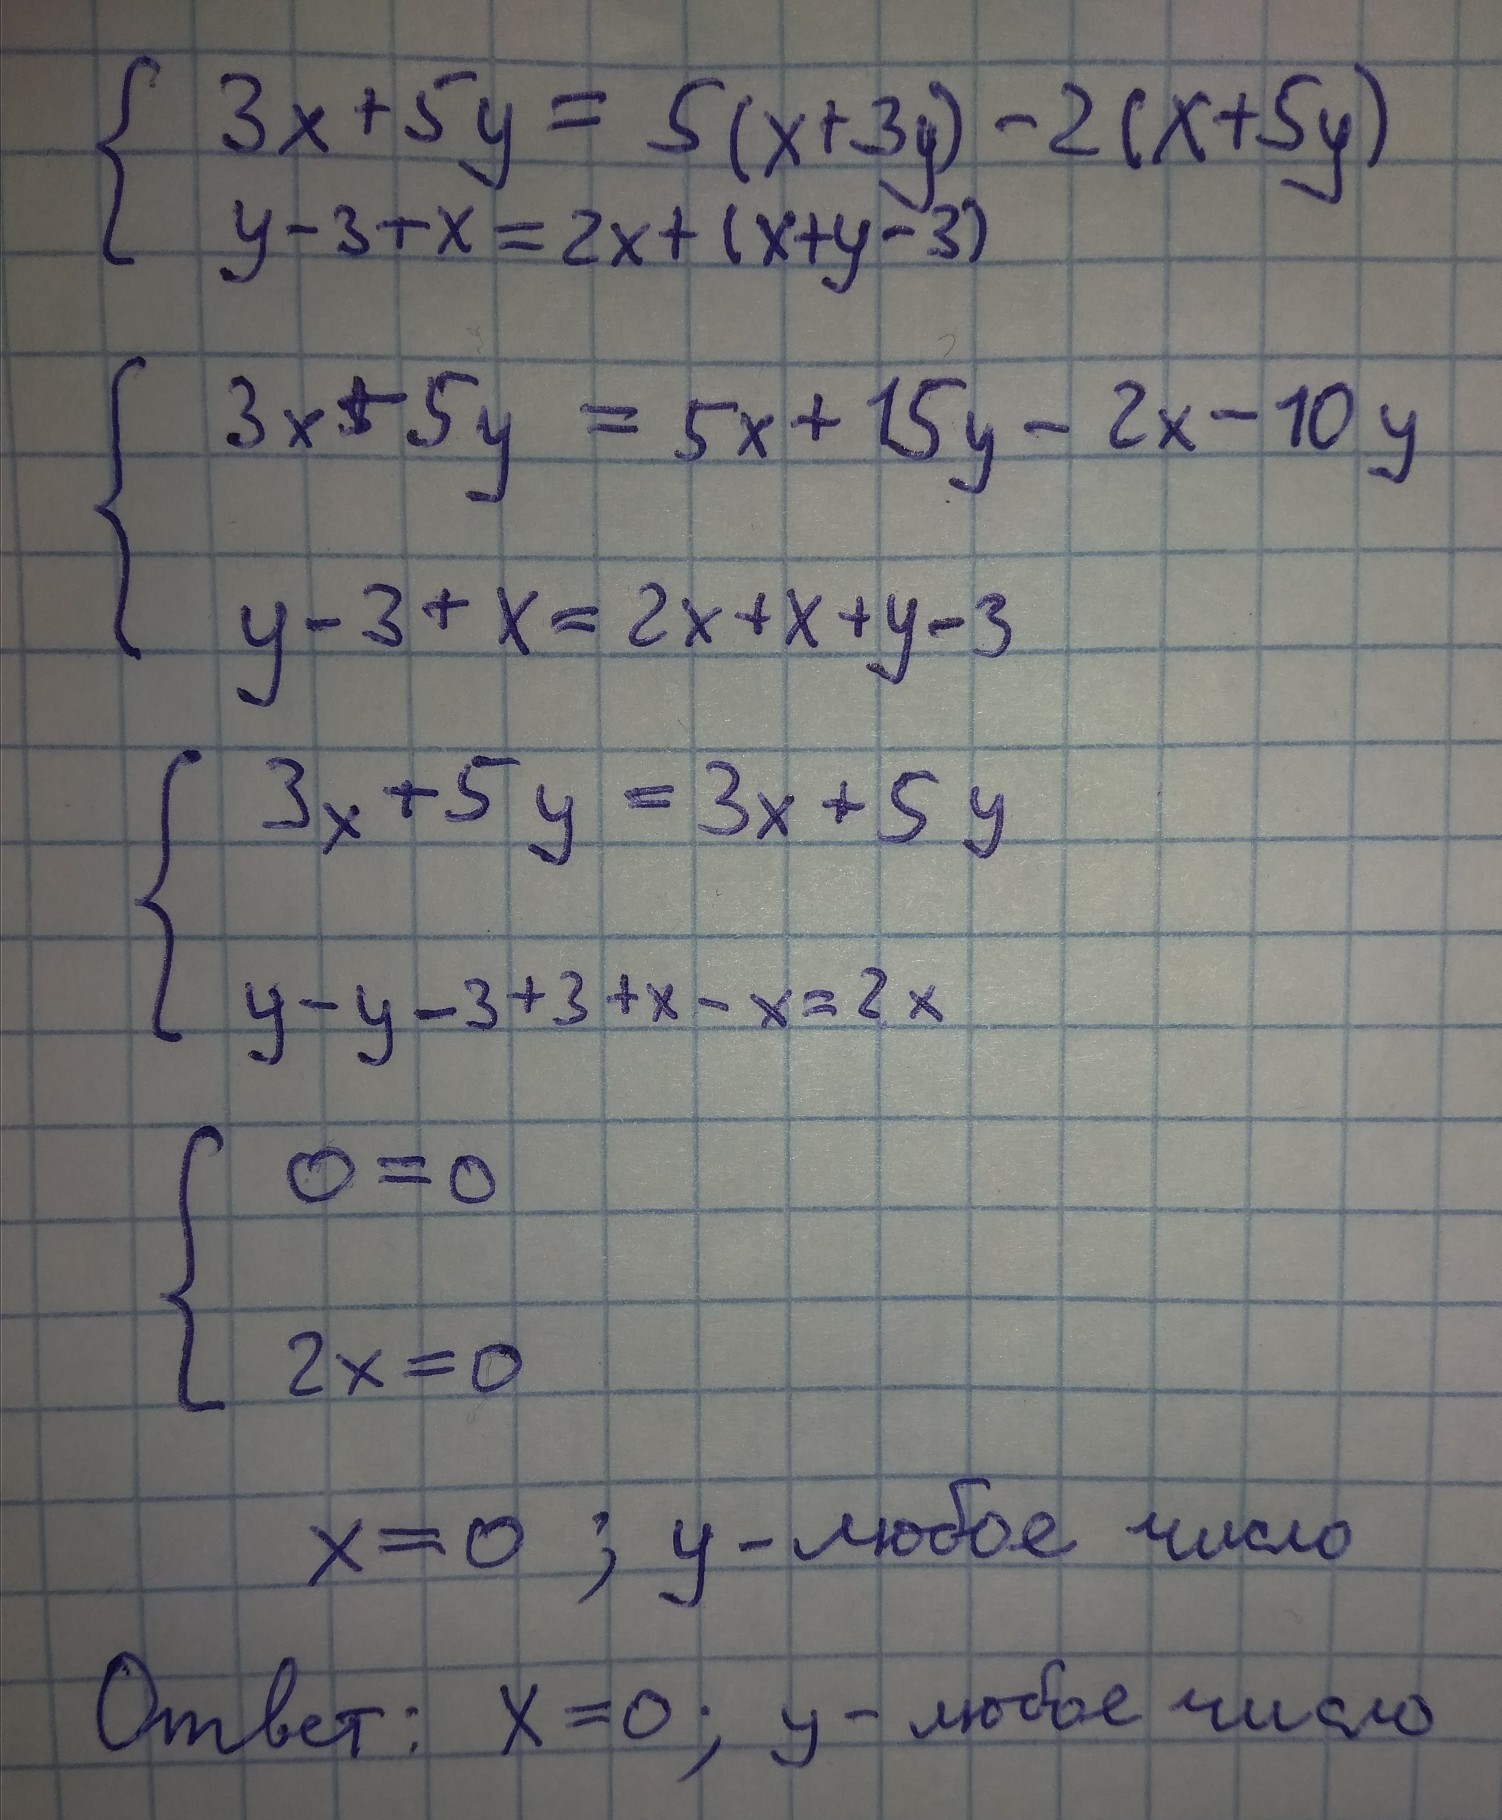 3x+5y = 5(x+3y)-2(x+5y)
y-3+x=2x+(x+y-3)
3x+5y = 5x+15y-2x-10y
y-3+x=2x+x+y-3
3x+5y=3x+5y
y-y-3+3+x-x=2x
0=0
2x=0
x=0; y-любое число
Ответ: x=0; y-любое число